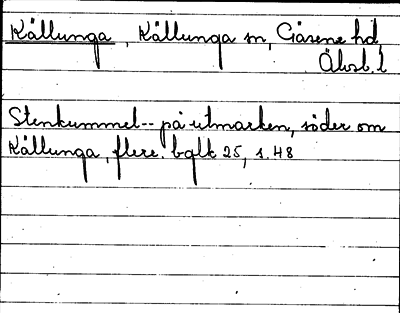 Kållunga, Kållunga sn, Gäsene hd,
Älvsb. l
Stenkummel -- på utmarken, söder om
Kållunga, flere. bglk 25, s. 48